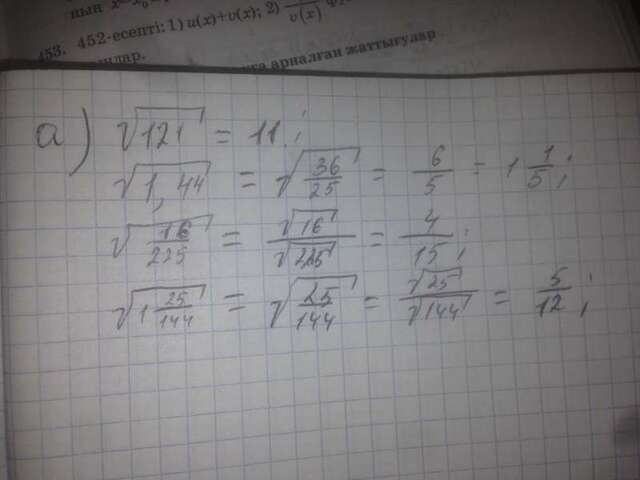 а) √121 = 11;
√1,44 = √36/25 = 6/5 = 1 1/5;
√16/225 = √16/√225 = 4/15;
√1 25/144 = √25/144 = √25/√144 = 5/12;
453. 452-есепті: 1) u(x)+v(x); 2)
v(x)
арналған жаттығулар